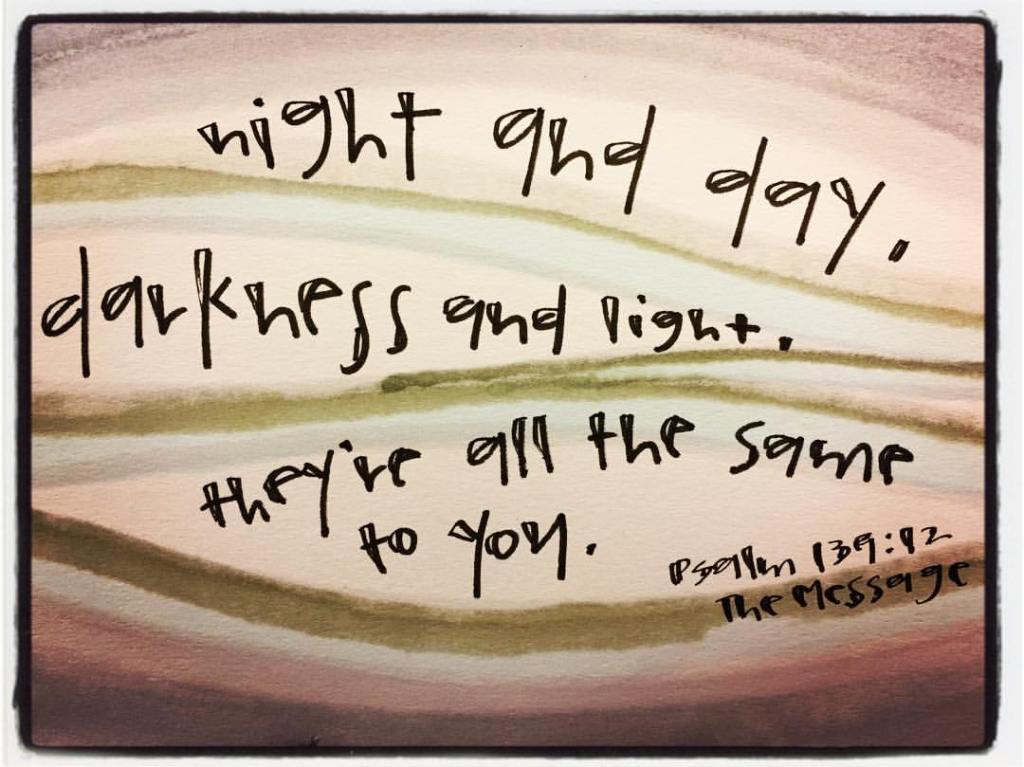 night and day.
darkness and light.
they're all the same
to you.
Psalm 139:12
The Message